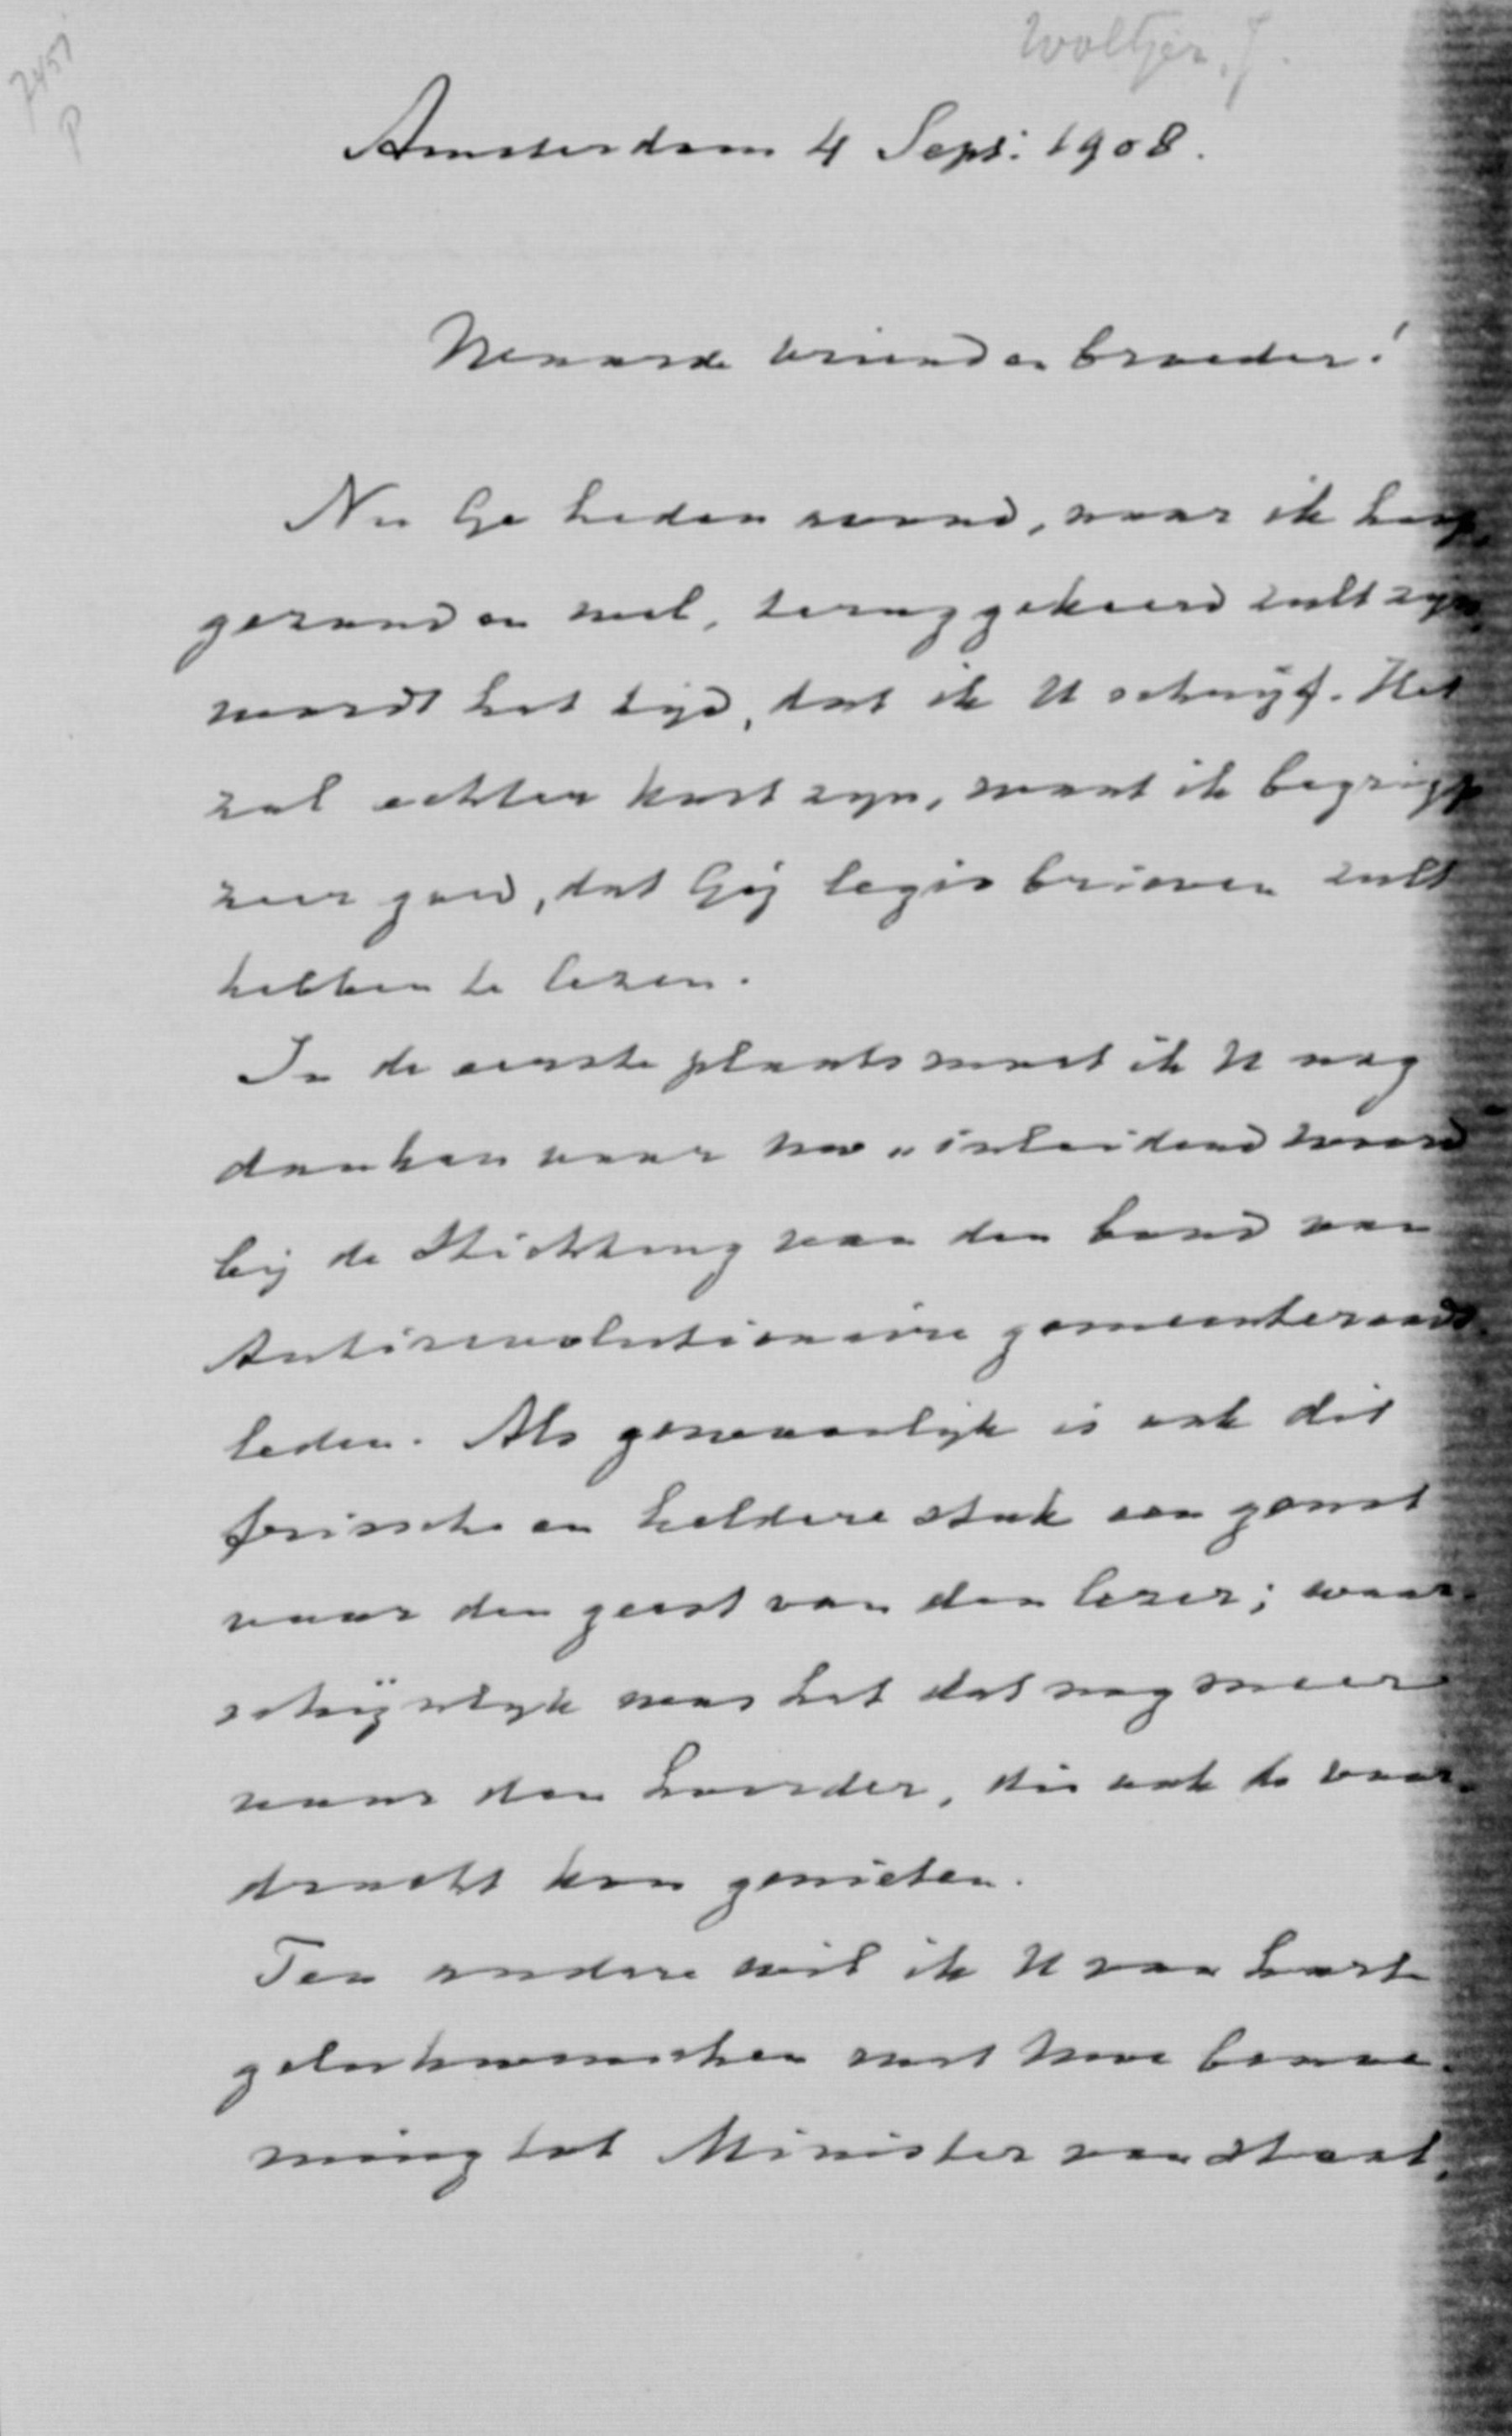 Woltjer, J.
7451
P
Amsterdam 4 Sept: 1908.
Waarde vriend en broeder!
Nu Ge heden avond, naar ik hoop,
gezond en wel, teruggekeerd zult zijn,
wordt het tijd, dat ik U schrijf. Het
zal echter kort zijn, want ik begrijp
zeer goed, dat Gij legio brieven zult
hebben te lezen.
In de eerste plaats moet ik U nog
danken voor Uw „inleidend woord
bij de Stichting van den bond van
Antirevolutionaire gemeenteraads-
leden. Als gewoonlijk is ook dit
frissche en heldere stuk een genot
voor den geest van den lezer; waar-
schijnlijk was het dat nog meer
voor den hoorder, die ook de voor-
dracht kon genieten.
Ten andere wil ik U van harte
gelukwenschen met Uwe benoe-
ming tot Minister van Staat,